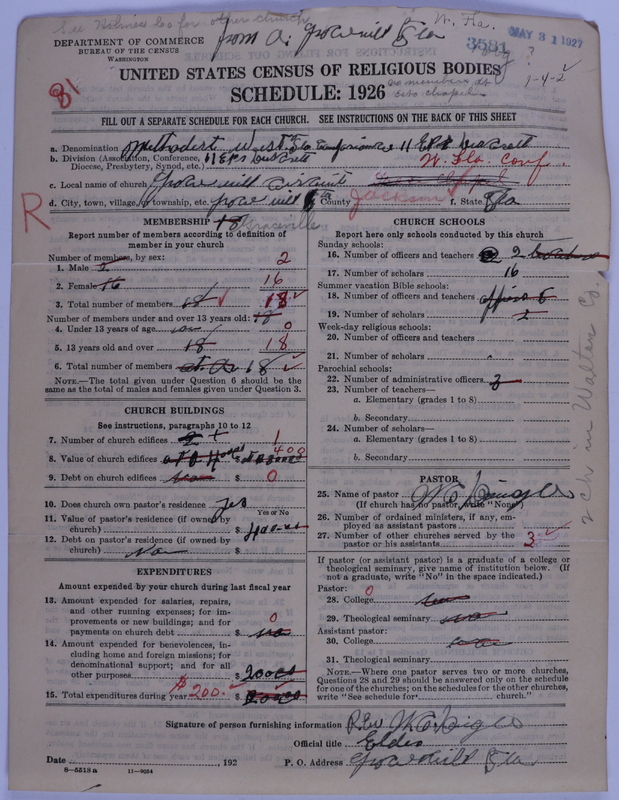 See Holmes Co for other church
W. Fla.
from
Fla
DEPARTMENT OF COMMERCE
BUREAU OF THE CENSUS
WASHINGTON
3551
MAY 31 1927
UNITED STATES CENSUS OF RELIGIOUS BODIES
SCHEDULE: 1926
no members at
1-4-2
81
FILL OUT A SEPARATE SCHEDULE FOR EACH CHURCH. SEE INSTRUCTIONS ON THE BACK OF THIS SHEET
a. Denomination Methodist West Fla
b. Division (Association, Conference, Diocese, Presbytery, Synod, etc.) W. Fla. Conf
c. Local name of church
d. City, town, village, or township, etc. County Jackson f. State Fla
Graceville
R
MEMBERSHIP 18
Report number of members according to definition of
member in your church
Number of members, by sex:
1. Male 2 2
2. Female 16 16
3. Total number of members 18 18
Number of members under and over 13 years old: 18
4. Under 13 years of age 0
5. 13 years old and over 18 18
6. Total number of members 18
NOTE.—The total given under Question 6 should be the
same as the total of males and females given under Question 3.
CHURCH BUILDINGS
See instructions, paragraphs 10 to 12
7. Number of church edifices 1
8. Value of church edifices $ 400
9. Debt on church edifices $ 0
10. Does church own pastor's residence? yes
Yes or No
11. Value of pastor's residence (if owned by
church) $
12. Debt on pastor's residence (if owned by
church) No $
EXPENDITURES
Amount expended by your church during last fiscal year
13. Amount expended for salaries, repairs,
and other running expenses; for im-
provements or new buildings; and for
payments on church debt $ 0
14. Amount expended for benevolences, in-
cluding home and foreign missions; for
denominational support; and for all
other purposes $
15. Total expenditures during year $200. $
CHURCH SCHOOLS
Report here only schools conducted by this church
Sunday schools:
16. Number of officers and teachers 2
17. Number of scholars 16
Summer vacation Bible schools:
18. Number of officers and teachers
19. Number of scholars 2
Week-day religious schools:
20. Number of officers and teachers
21. Number of scholars
Parochial schools:
22. Number of administrative officers 3
23. Number of teachers—
a. Elementary (grades 1 to 8)
b. Secondary
24. Number of scholars—
a. Elementary (grades 1 to 8)
b. Secondary
PASTOR
25. Name of pastor
(If church has no pastor, write "None")
26. Number of ordained ministers, if any, em-
ployed as assistant pastors
27. Number of other churches served by the
pastor or his assistants 3
If pastor (or assistant pastor) is a graduate of a college or
theological seminary, give name of institution below. (If
not a graduate, write "No" in the space indicated.)
Pastor: 0
28. College
29. Theological seminary
Assistant pastor:
30. College
31. Theological seminary
NOTE.—Where one pastor serves two or more churches,
Questions 28 and 29 should be answered only on the schedule
for one of the churches; on the schedules for the other churches,
write "See schedule for church."
2 ch in Walton Co.
Signature of person furnishing information Rev
Official title Elder
Date , 192 P. O. Address Fla
8—5513 a 11—9034